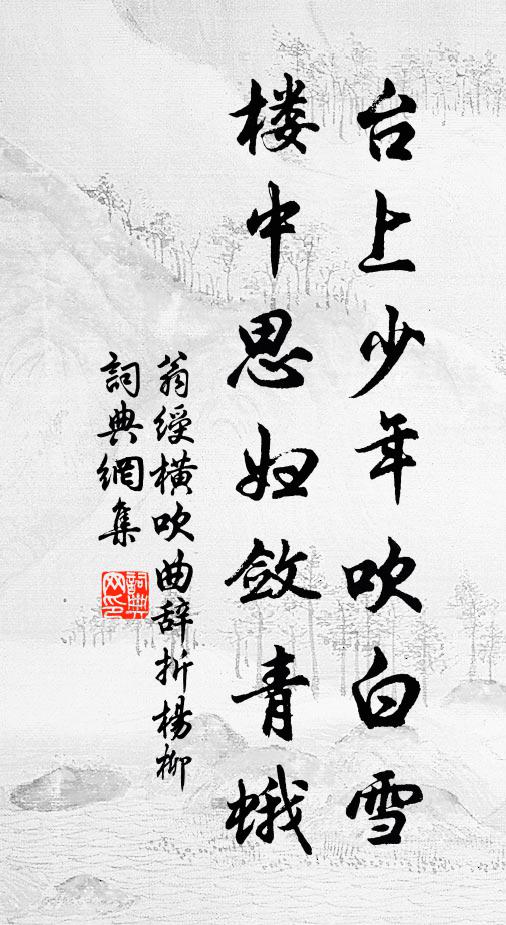 台上少年吹白雪
楼中思妇敛青蛾
翁绶横吹曲辞折杨柳
詞典網集
詞典网印